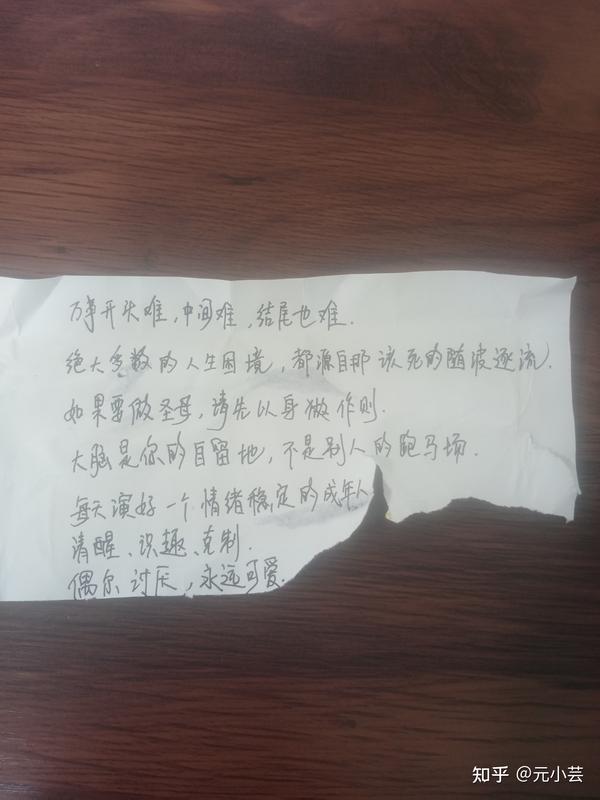 万事开头难,中间难,结尾也难.
绝大多数的人生困境,都源自那该死的随波逐流.
如果要做圣母,请先以身做作则.
大脑是你的自留地,不是别人的跑马场.
每天演好一个情绪稳定的成年人
清醒、识趣、克制.
偶尔讨厌,永远可爱.
知乎 @元小芸